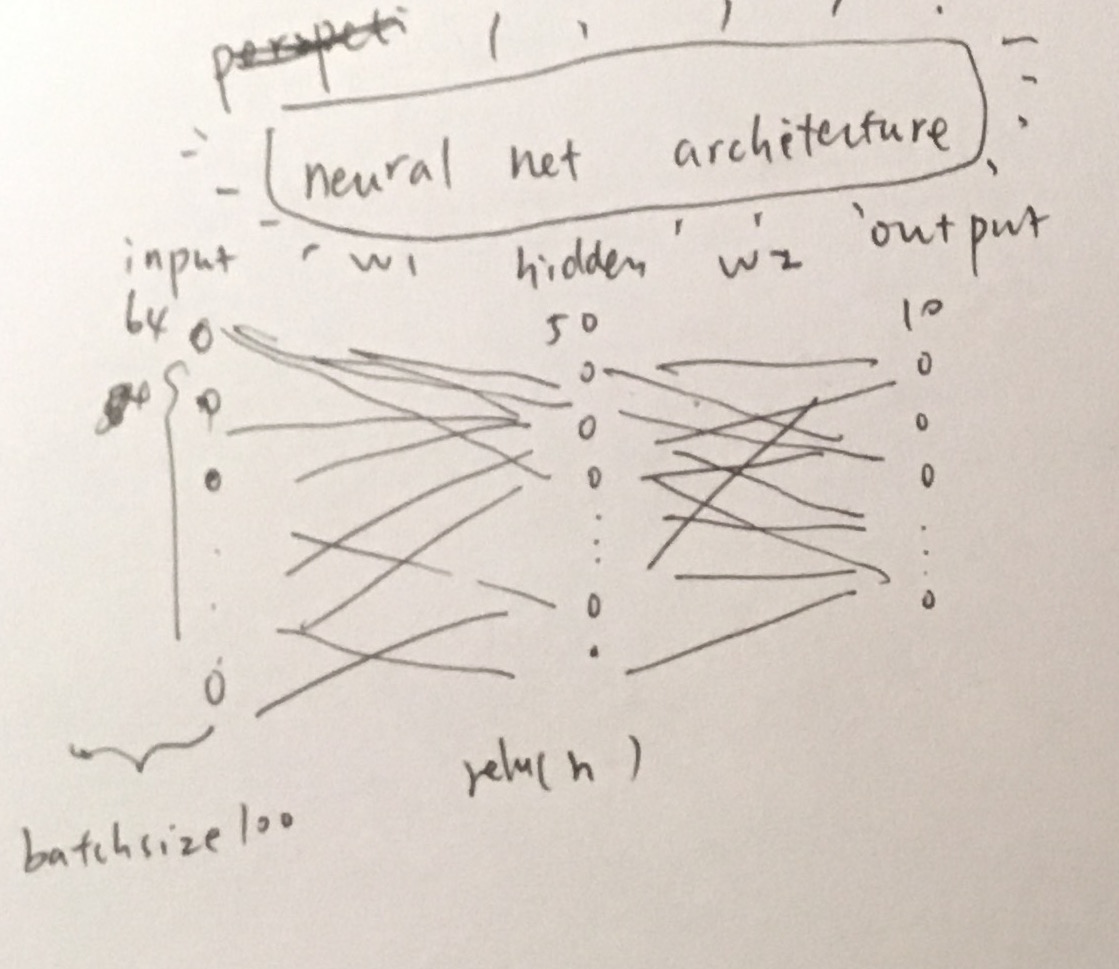 neural net architecture
input w1 hidden w2 output
64 50 10
relu(h)
batchsize 100